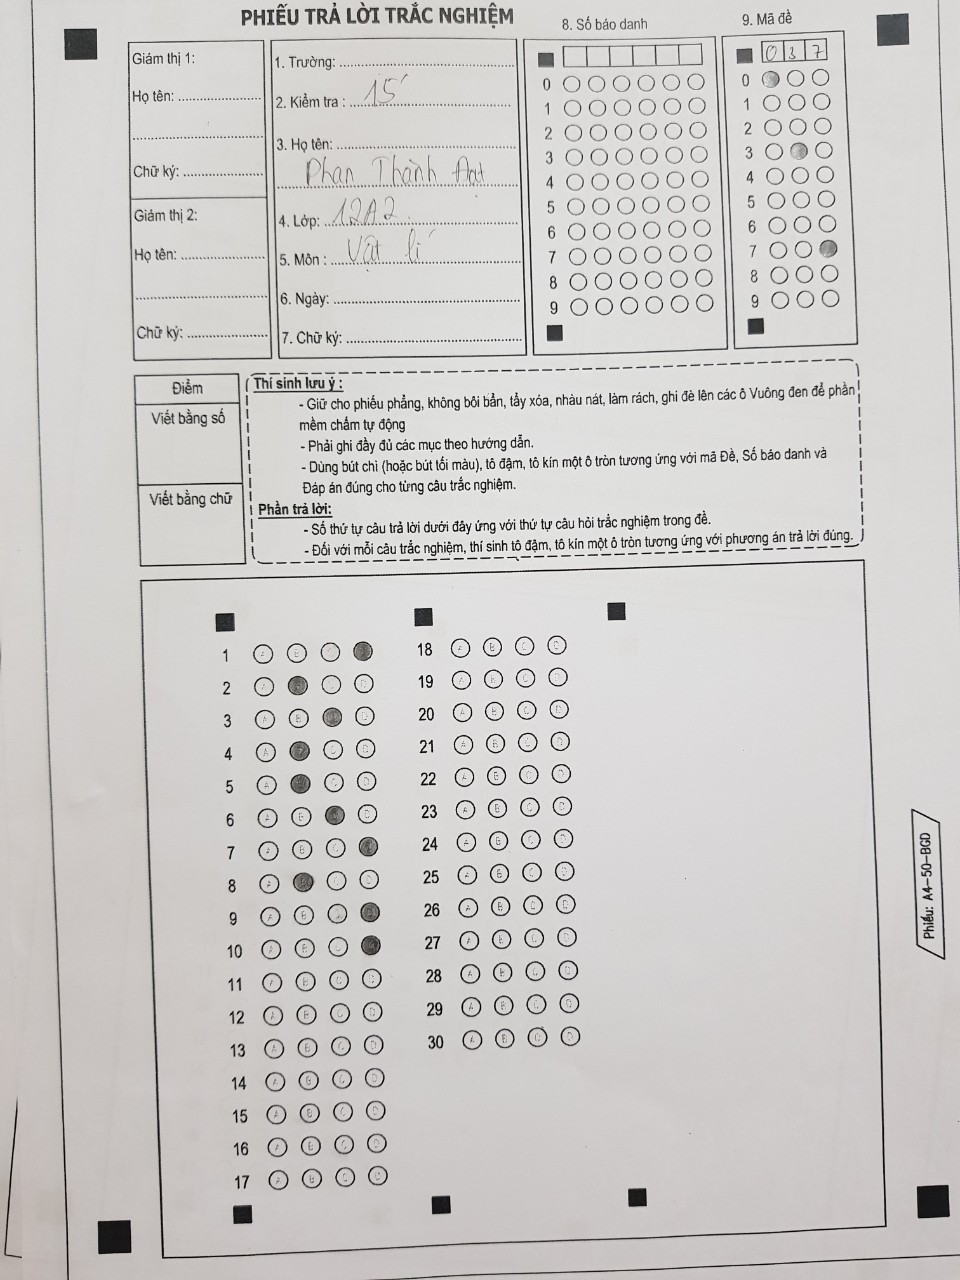 PHIẾU TRẢ LỜI TRẮC NGHIỆM
Giám thị 1:
Họ tên:
Chữ ký:
Giám thị 2:
Họ tên:
Chữ ký:
1. Trường:
2. Kiểm tra : 15'
3. Họ tên:
Phan Thành Đạt
4. Lớp: 12A2
5. Môn : Vật lí
6. Ngày:
7. Chữ ký:
8. Số báo danh
0
1
2
3
4
5
6
7
8
9
9. Mã đề
0 3 7
0
1
2
3
4
5
6
7
8
9
Điểm
Viết bằng số
Viết bằng chữ
Thí sinh lưu ý :
- Giữ cho phiếu phẳng, không bôi bẩn, tẩy xóa, nhàu nát, làm rách, ghi đè lên các ô Vuông đen để phần
mềm chấm tự động
- Phải ghi đầy đủ các mục theo hướng dẫn.
- Dùng bút chì (hoặc bút tối màu), tô đậm, tô kín một ô tròn tương ứng với mã Đề, Số báo danh và
Đáp án đúng cho từng câu trắc nghiệm.
Phần trả lời:
- Số thứ tự câu trả lời dưới đây ứng với thứ tự câu hỏi trắc nghiệm trong đề.
- Đối với mỗi câu trắc nghiệm, thí sinh tô đậm, tô kín một ô tròn tương ứng với phương án trả lời đúng.
1 A B C
2 A C D
3 A B D
4 A C D
5 A C D
6 A B D
7 A B C
8 A C D
9 A B C
10 A B C
11 A B C D
12 A B C D
13 A B C D
14 A B C D
15 A B C D
16 A B C D
17 A B C D
18 A B C D
19 A B C D
20 A B C D
21 A B C D
22 A B C D
23 A B C D
24 A B C D
25 A B C D
26 A B C D
27 A B C D
28 A B C D
29 A B C D
30 A B C D
Phiếu: A4-50-BGD